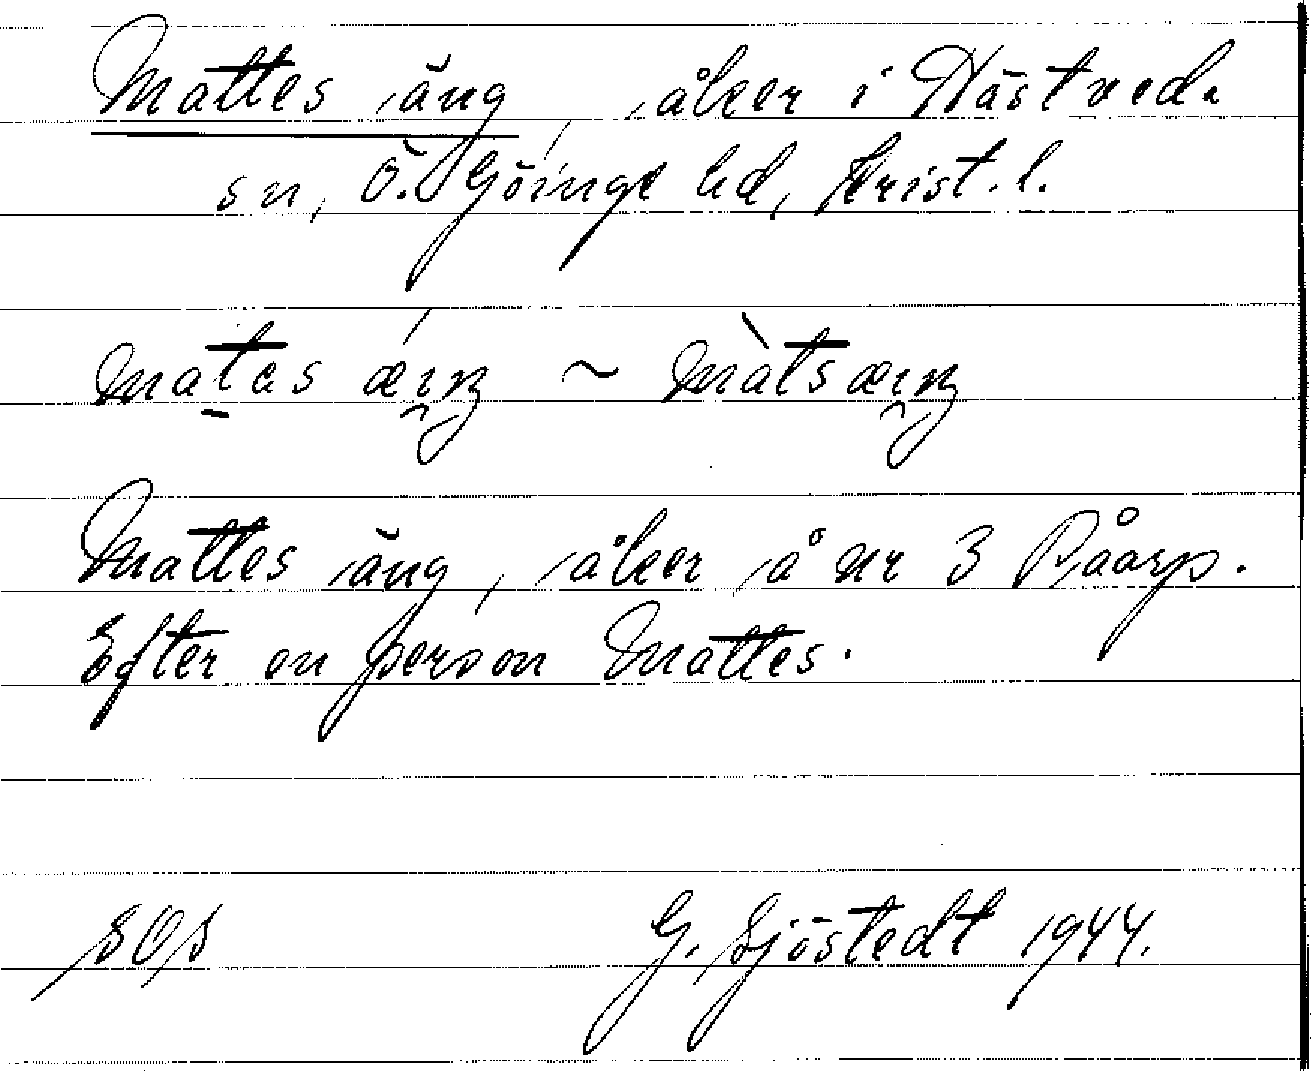 Mattes äng, åker i Hästveda
sn, Ö. Göinge hd, Krist. l.
matas æıŋ ~ màtsæıŋ
Mattes äng, åker å nr 3 Råarp.
Efter en person Mattes.
SOS G. Sjöstedt 1944.